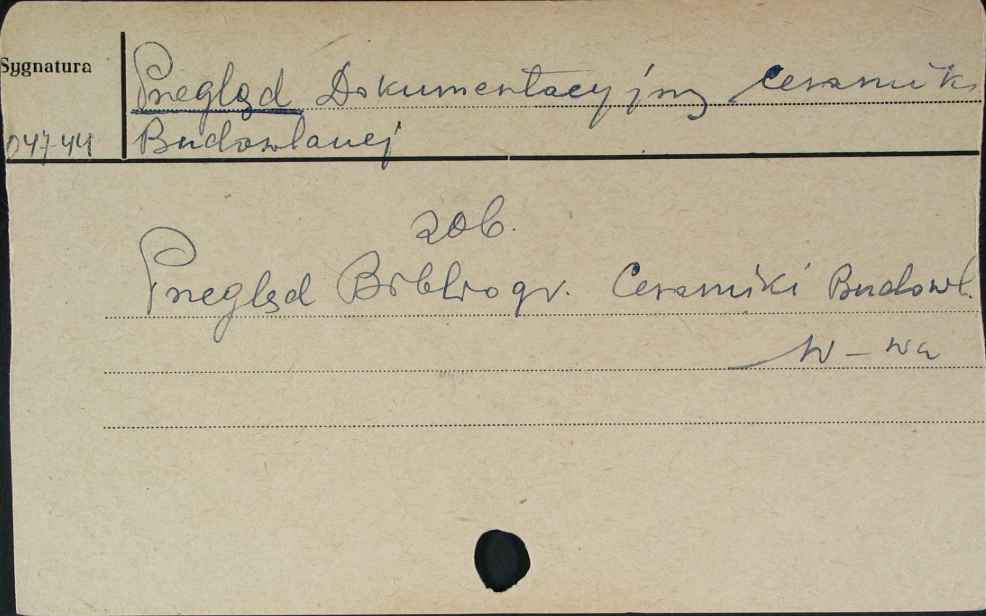 Sygnatura
Przegląd Dokumentacyjny Ceramiki
04744 Budowlanej
zob.
Przegląd Bibliogr. Ceramiki Budowl.
W-wa